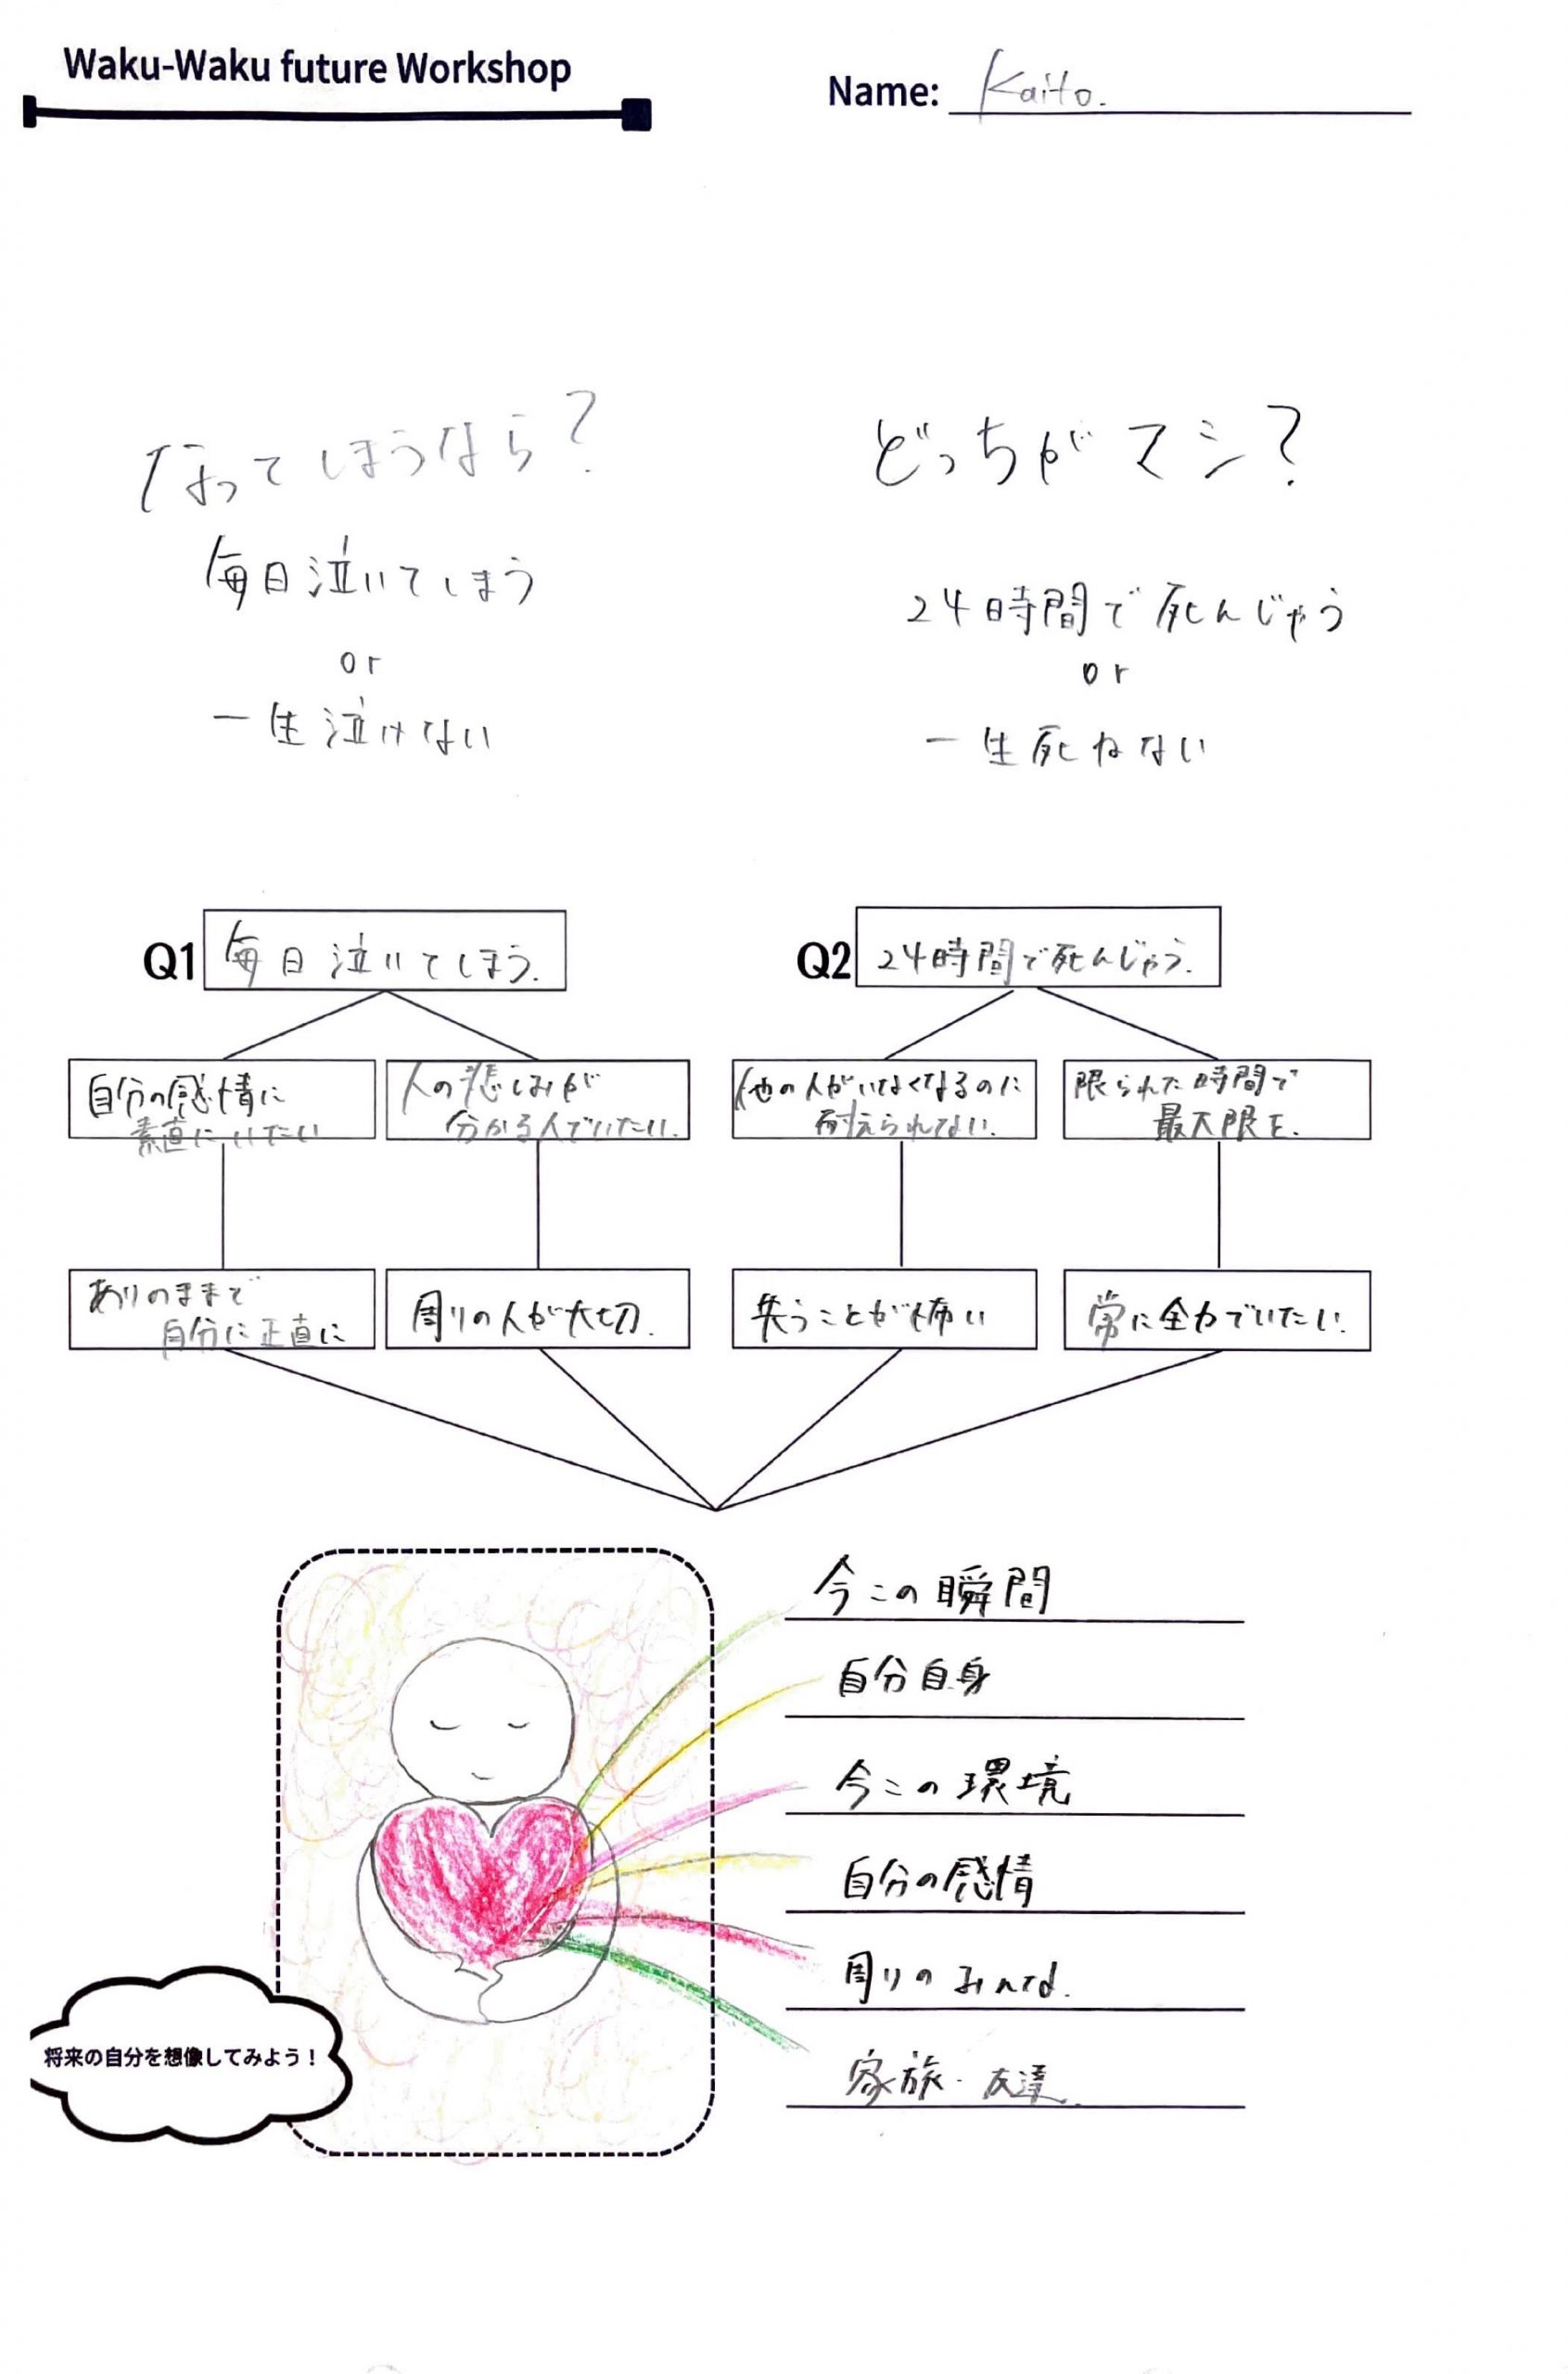 Waku-Waku future Workshop
Name: Kaito.
なってしまうなら?
毎日泣いてしまう
or
一生泣けない
どっちがマシ?
24時間で死んじゃう
or
一生死ねない
Q1 毎日泣いてしまう.
自分の感情に
素直にいたい
人の悲しみが
分かる人でいたい.
ありのままで
自分に正直に
周りの人が大切.
Q2 24時間で死んじゃう.
他の人がいなくなるのに
耐えられない.
限られた時間で
最大限を.
失うことが怖い
常に全力でいたい.
今この瞬間
自分自身
今この環境
自分の感情
周りのみんな.
家族・友達.
将来の自分を想像してみよう!